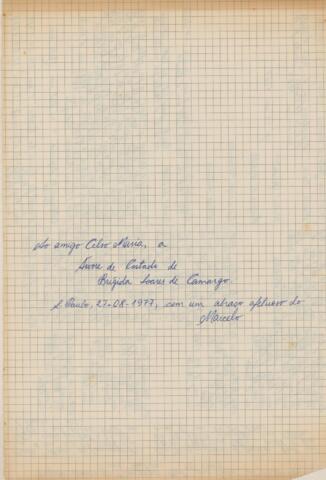 Ao amigo Celso Maria, a
Árvore de Costado de
Brígida Soares de Camargo.
S. Paulo, 27-08-1977, com um abraço afetuoso do
Marcelo